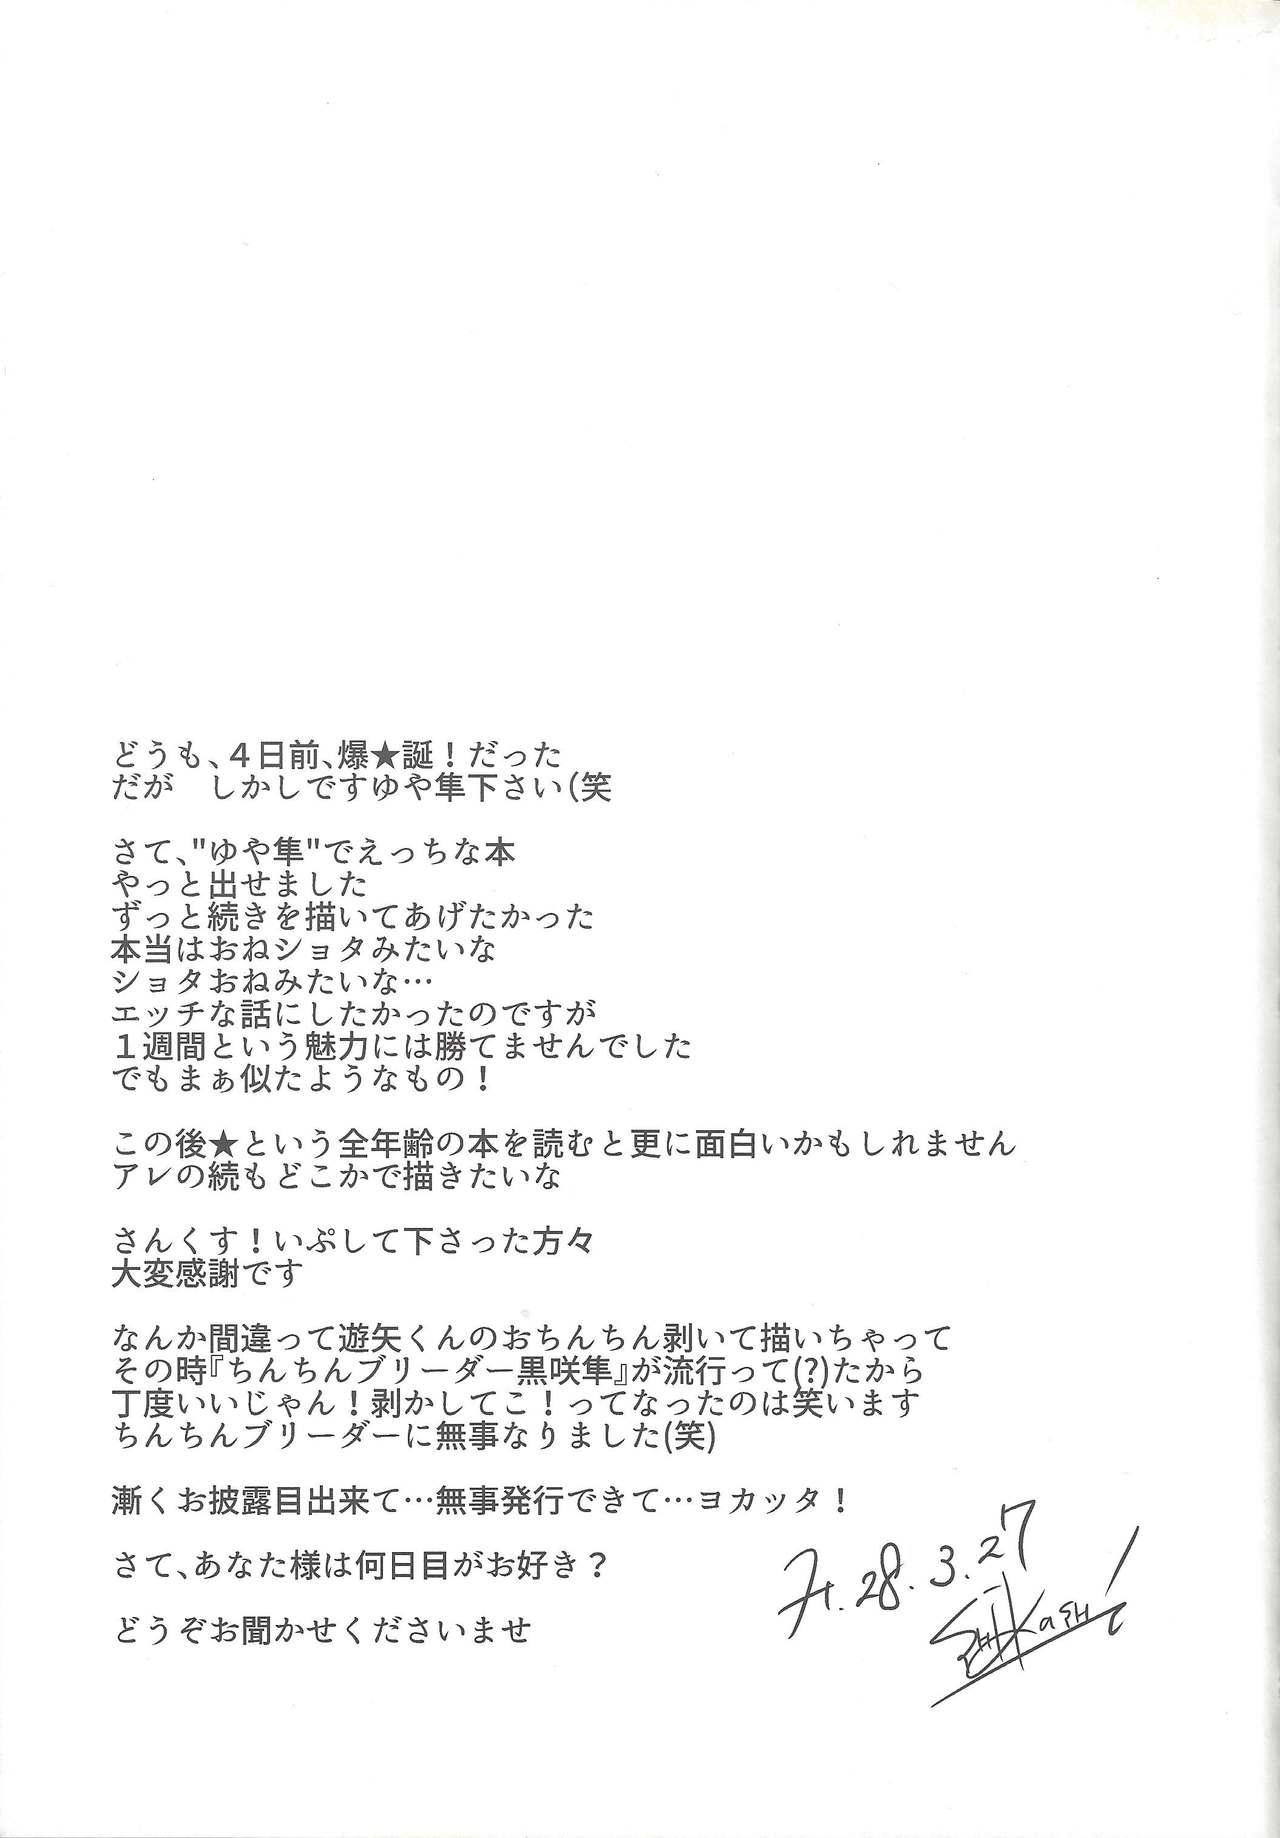 どうも、４日前、爆★誕！だった
だが　しかしですゆや隼下さい（笑
さて、"ゆや隼"でえっちな本
やっと出せました
ずっと続きを描いてあげたかった
本当はおねショタみたいな
ショタおねみたいな…
エッチな話にしたかったのですが
１週間という魅力には勝てませんでした
でもまぁ似たようなもの！
この後★という全年齢の本を読むと更に面白いかもしれません
アレの続もどこかで描きたいな
さんくす！いぷして下さった方々
大変感謝です
なんか間違って遊矢くんのおちんちん剥いて描いちゃって
その時『ちんちんブリーダー黒咲隼』が流行って(?)たから
丁度いいじゃん！剥かしてこ！ってなったのは笑います
ちんちんブリーダーに無事なりました(笑)
漸くお披露目出来て…無事発行できて…ヨカッタ！
さて、あなた様は何日目がお好き？
どうぞお聞かせくださいませ
H.28.3.27